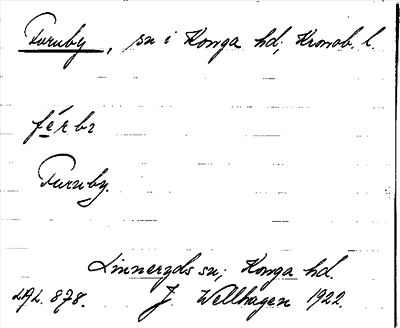 Furuby, sn i Konga hd; Kronob. l.
férbɩ
Furuby.
Linneryds sn; Konga hd.
LAL. 878. J. Wellhagen 1922.